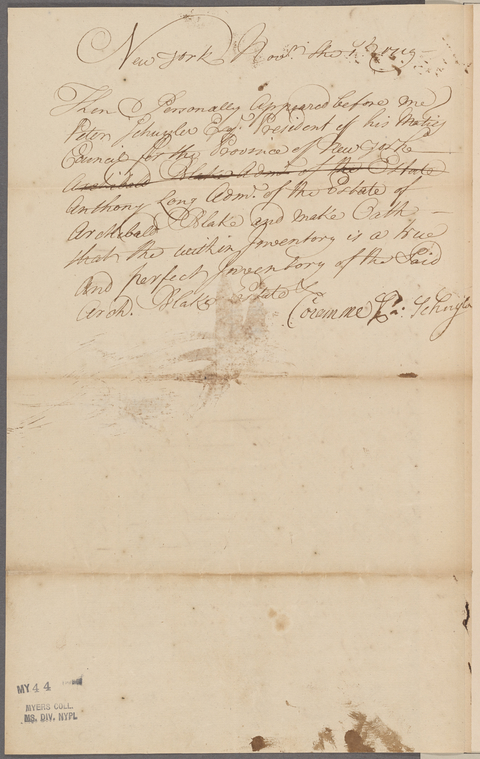 New York Novr. the 1719
Then Personally Appeared before me
Peter Schuyler Esqr. President of his Maties
Council for the Province of New Yorke
Archibald Blake Admr. of the Estate
Anthony Long Admr. of the Estate of
Archibald Blake and make Oath
that the within Inventory is a true
and perfect Inventory of the Said
Arch. Blake Estate
Coram me Pr: Schuyler
MY 44
MYERS COLL.
MS. DIV. NYPL